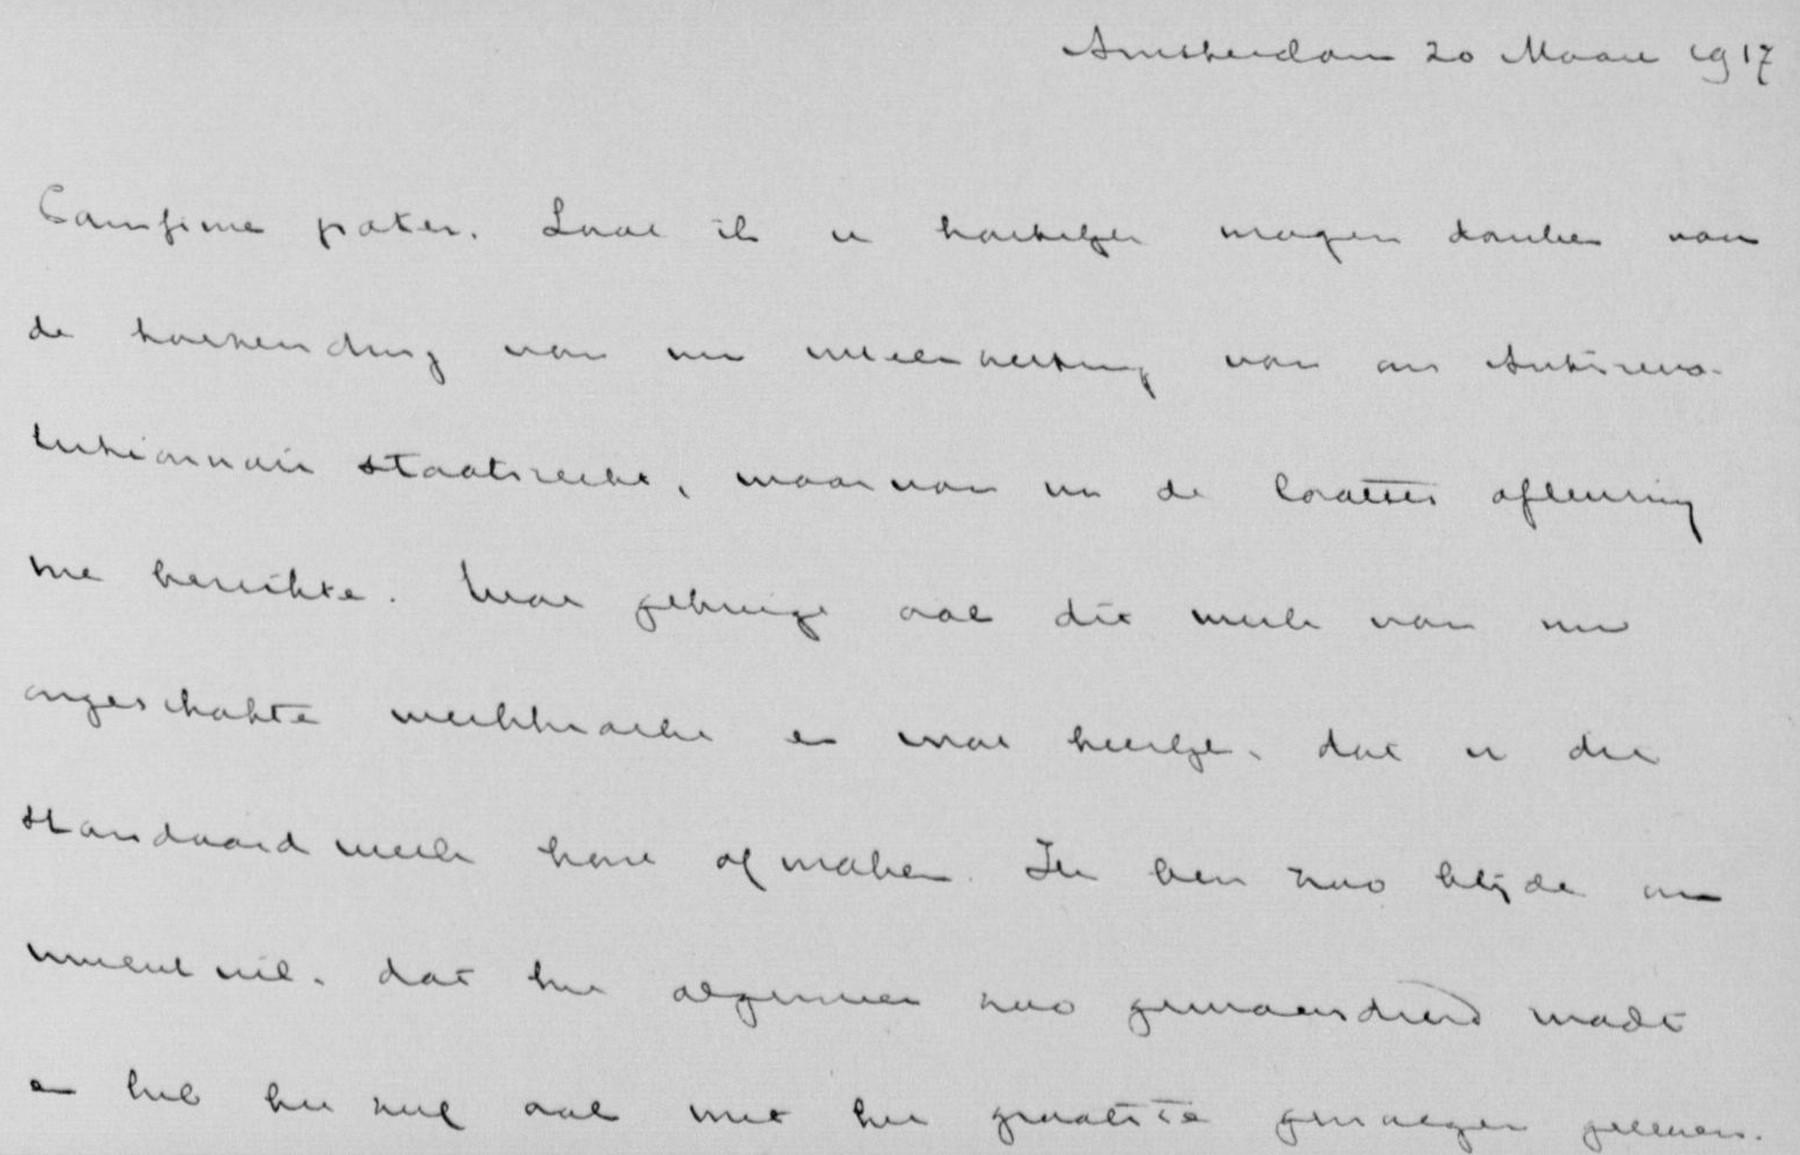 Amsterdam 20 Maart 1917
Carissime pater. Laat ik u hartelijk mogen danken voor
de toezending van uw meerwerking van ons Antirevo-
lutionnair staatsrecht, waarvan nu de laatste aflevering
me bereikte. Wat getuigt ook dit werk van uw
ongeschokte werkkracht en wat heerlijk, dat u dit
standaardwerk hebt afmaken. Ik ben zoo blijde om
uwentwil, dat het algemeen zoo gewaardeerd wordt
en heb het zelf ook met het grootste genoegen gelezen.